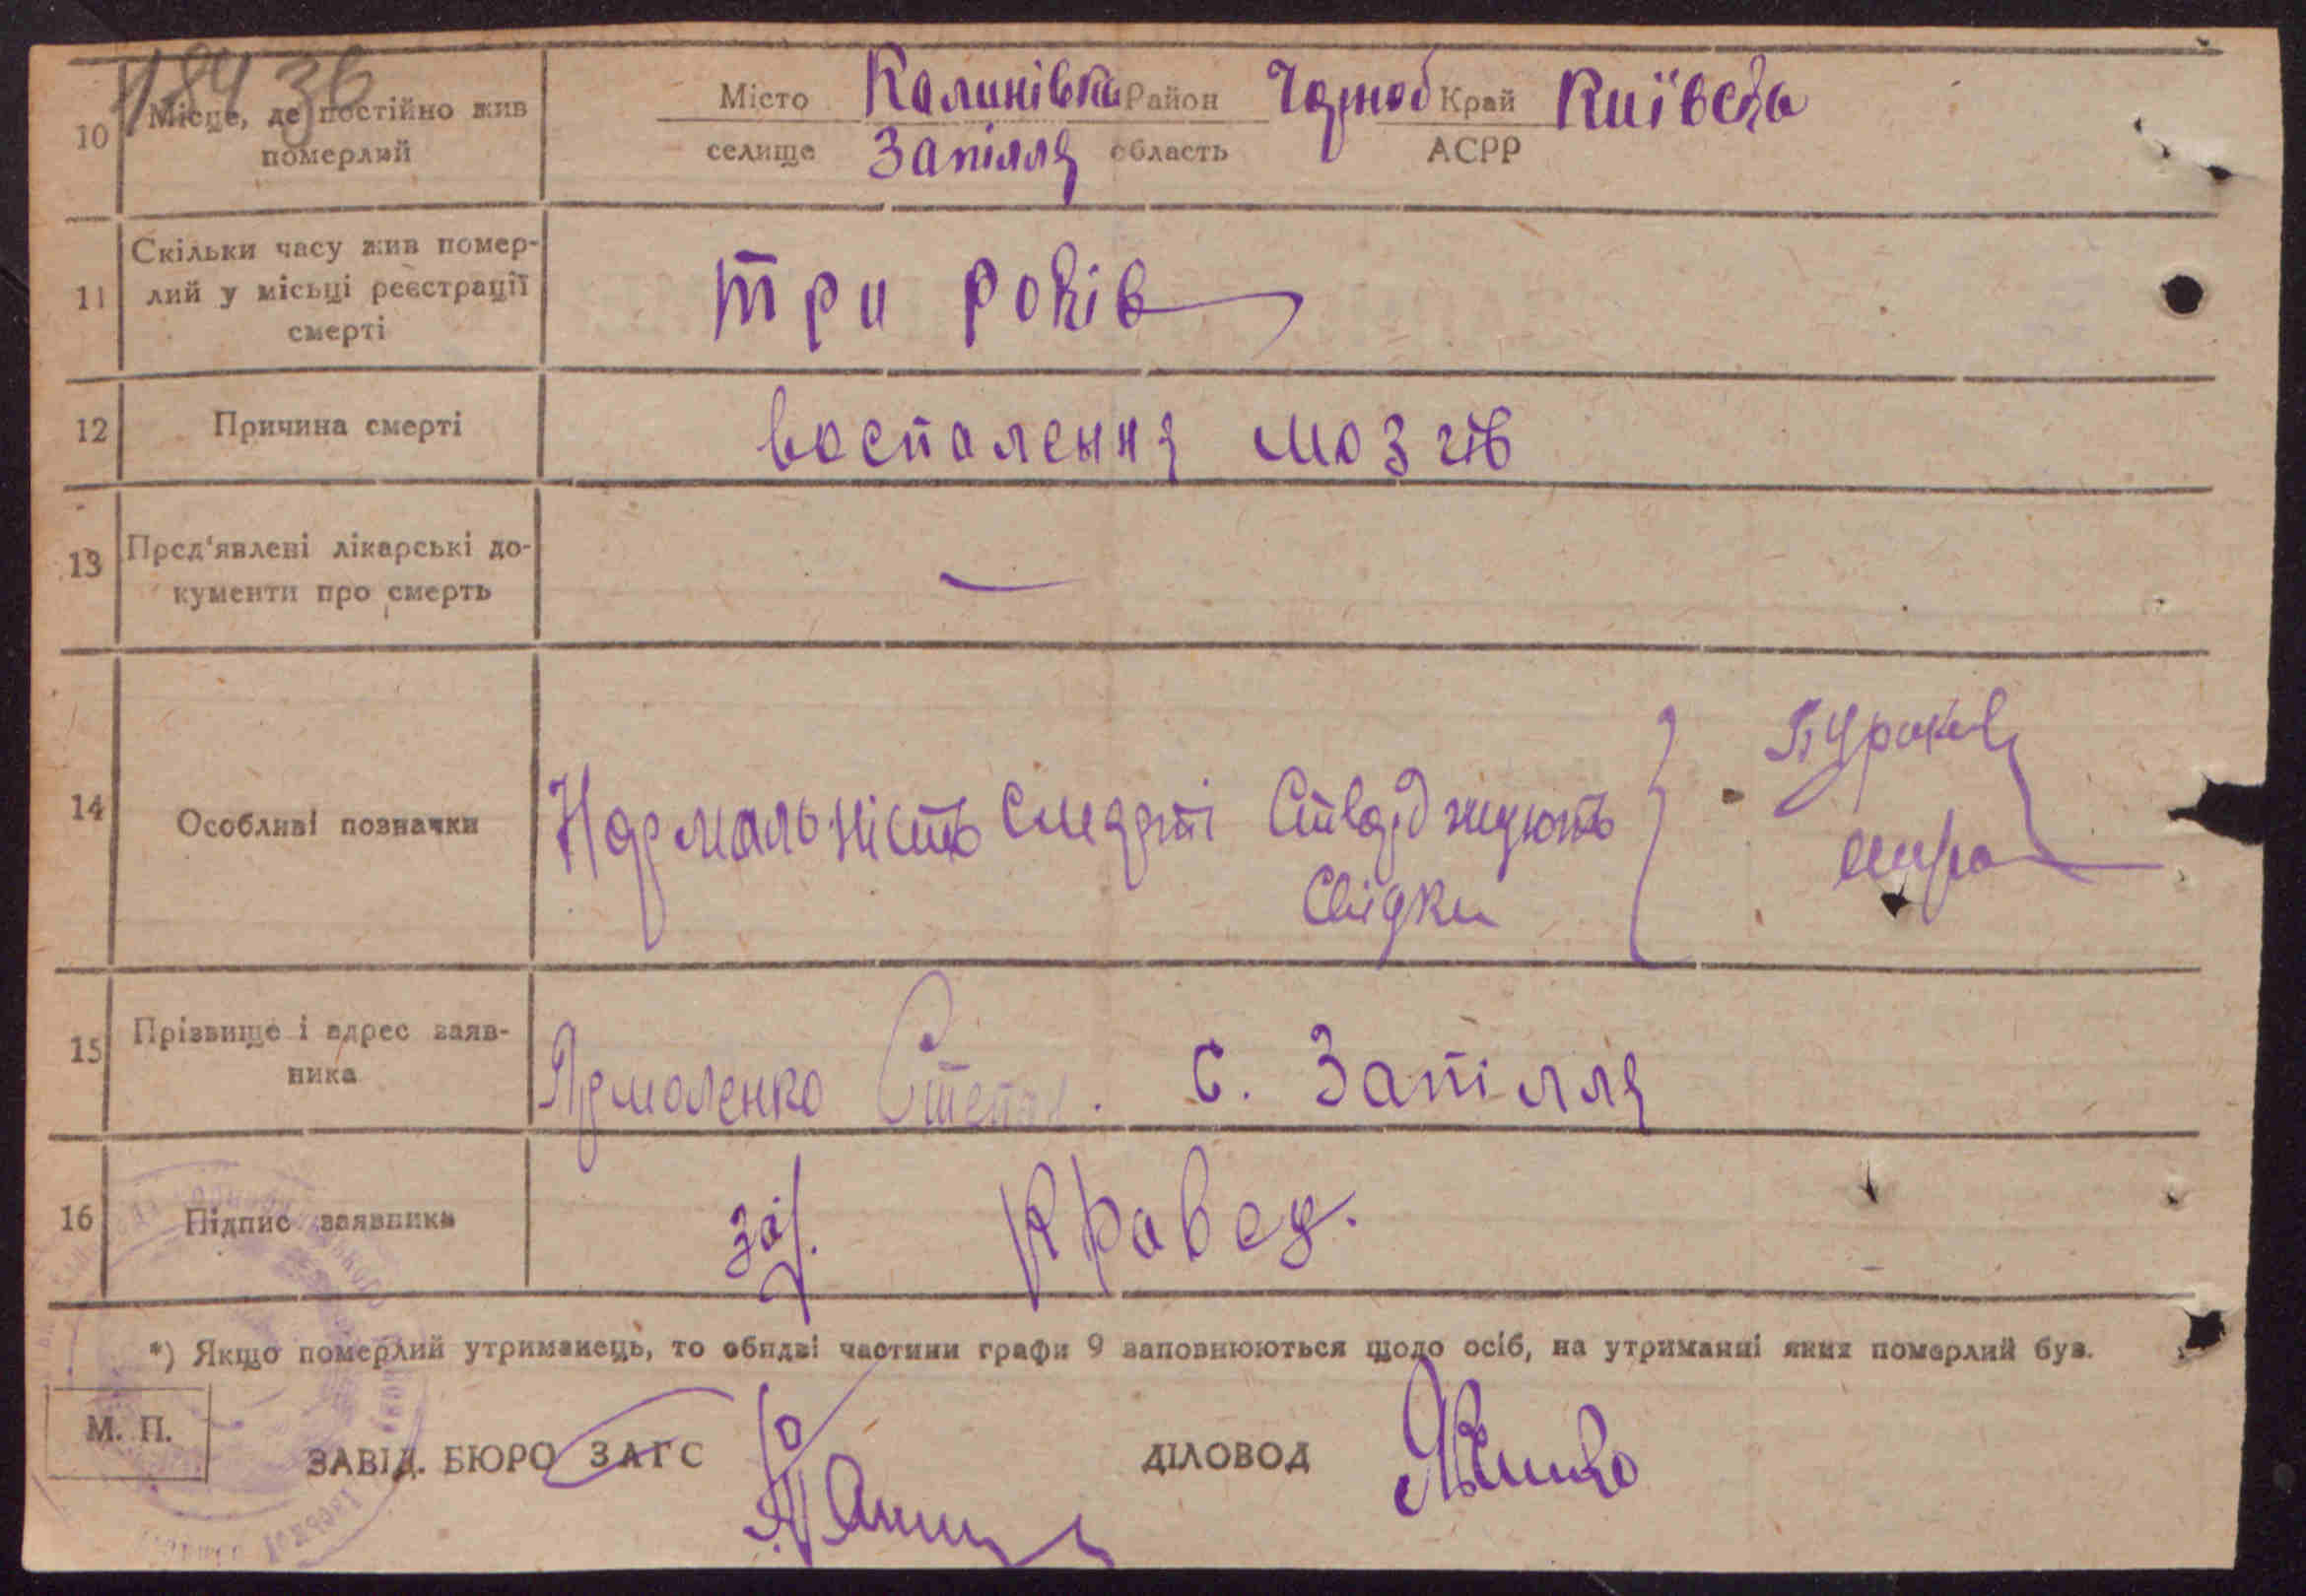 18436
10 Місце, де постійно жив померлий Місто Калинівка Район Чорноб Край Київська
селище Запілля область АСРР
11 Скільки часу жив помер-
лий у місьці реєстрації
смерті
три років
12 Причина смерті воспалення мозгів
13 Пред'явлені лікарські до-
кументи про смерть
—
14 Особливі позначки Нормальність смерти стверджують
свідки
15 Прізвище і адрес заяв-
ника
Ярмоленко Степан. с. Запілля
16 Підпис заявника за Кравец.
*) Якщо померлий утриманець, то обидві частини графи 9 заповнюються щодо осіб, на утриманні яких померлий був.
М. П.
ЗАВІД. БЮРО ЗАГС ДІЛОВОД